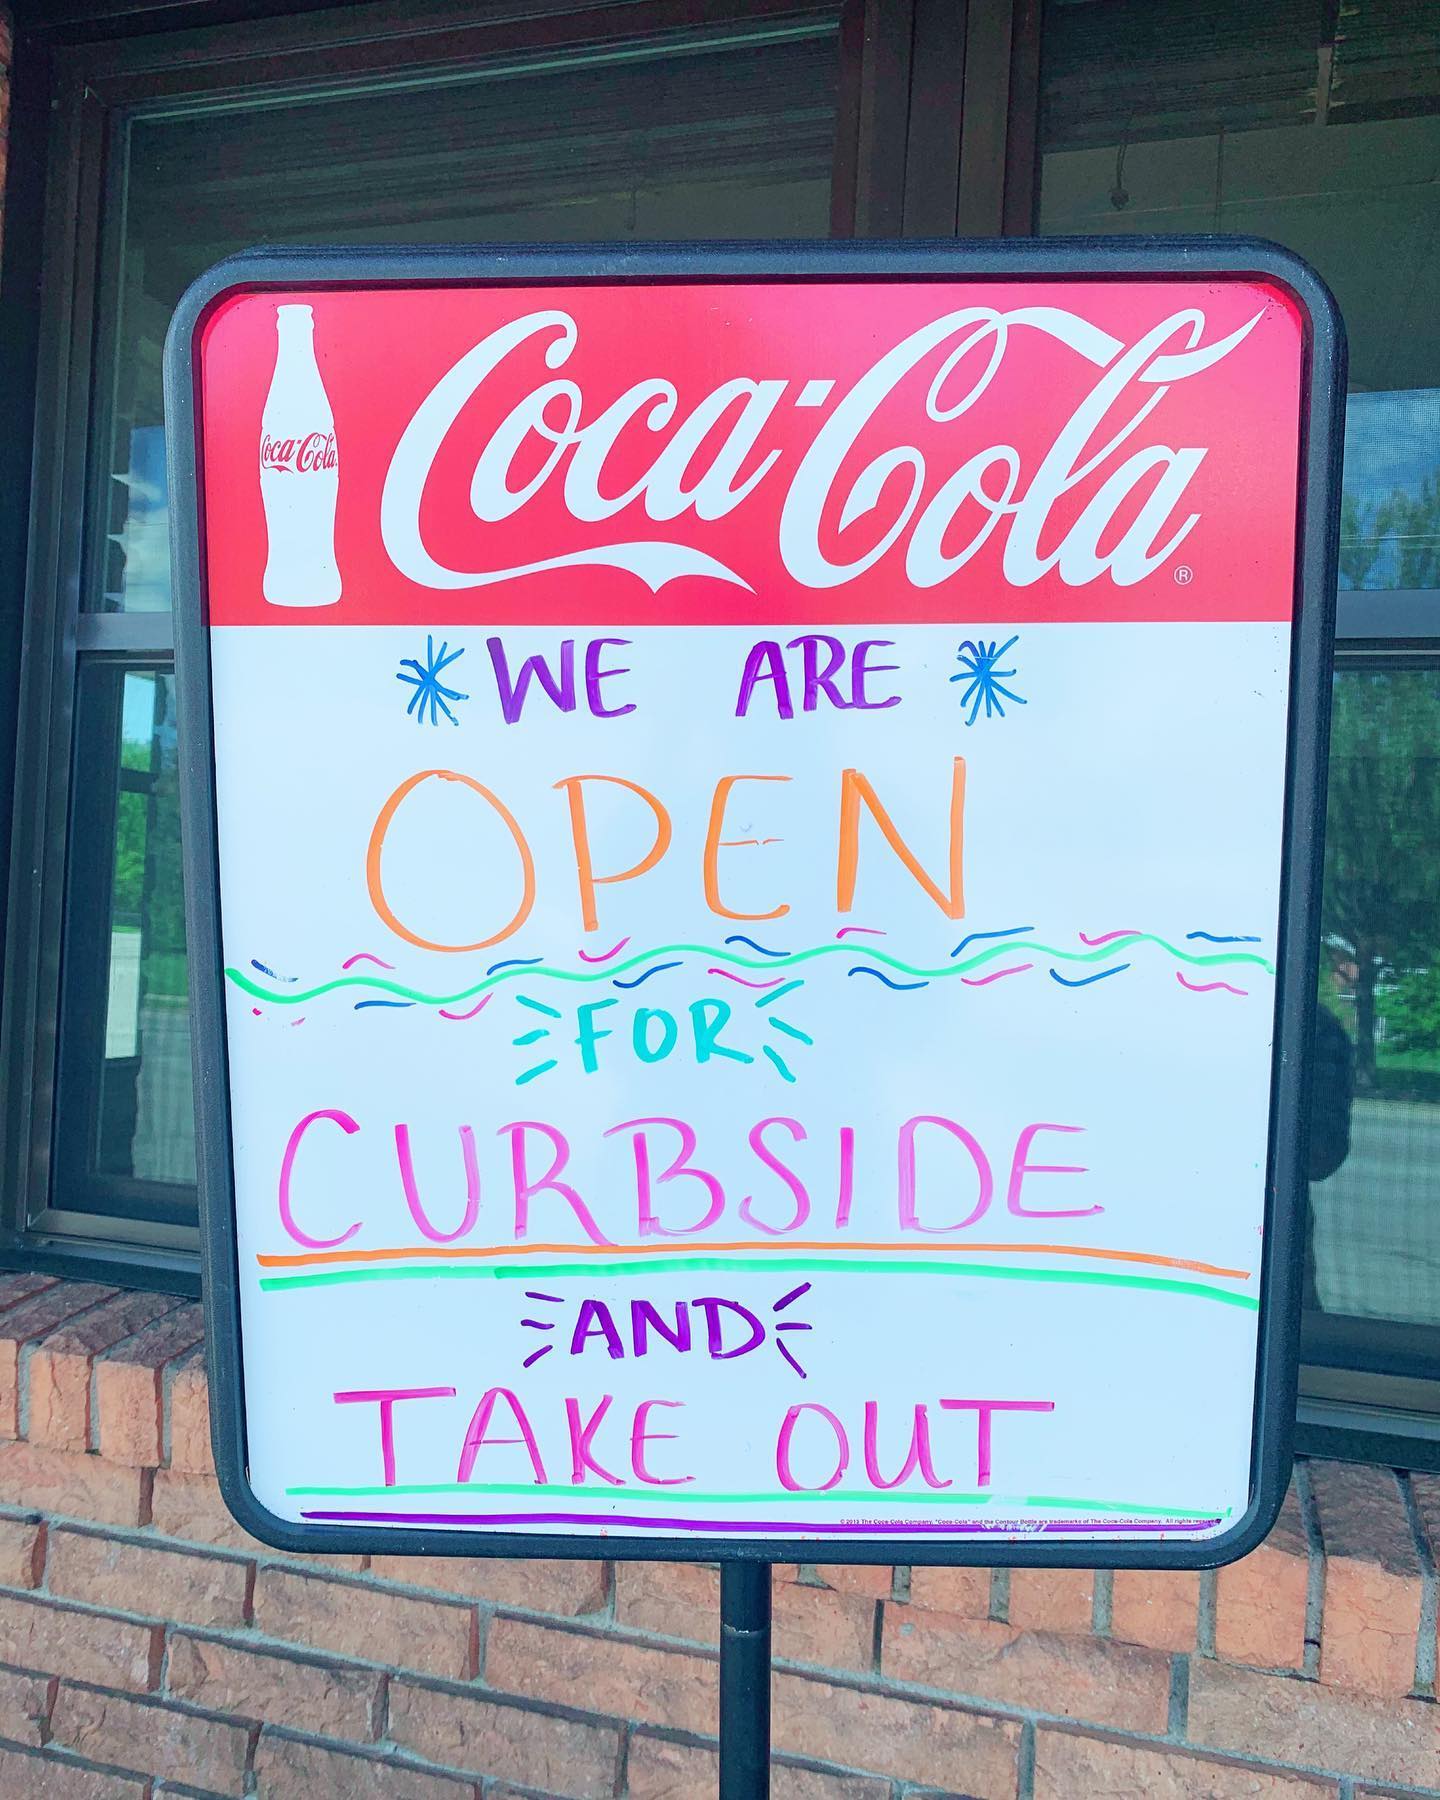 Coca-Cola
Coca-Cola ®
* WE ARE *
OPEN
FOR
CURBSIDE
AND
TAKE OUT
© 2013 The Coca-Cola Company. "Coca-Cola" and the Contour Bottle are trademarks of The Coca-Cola Company. All rights